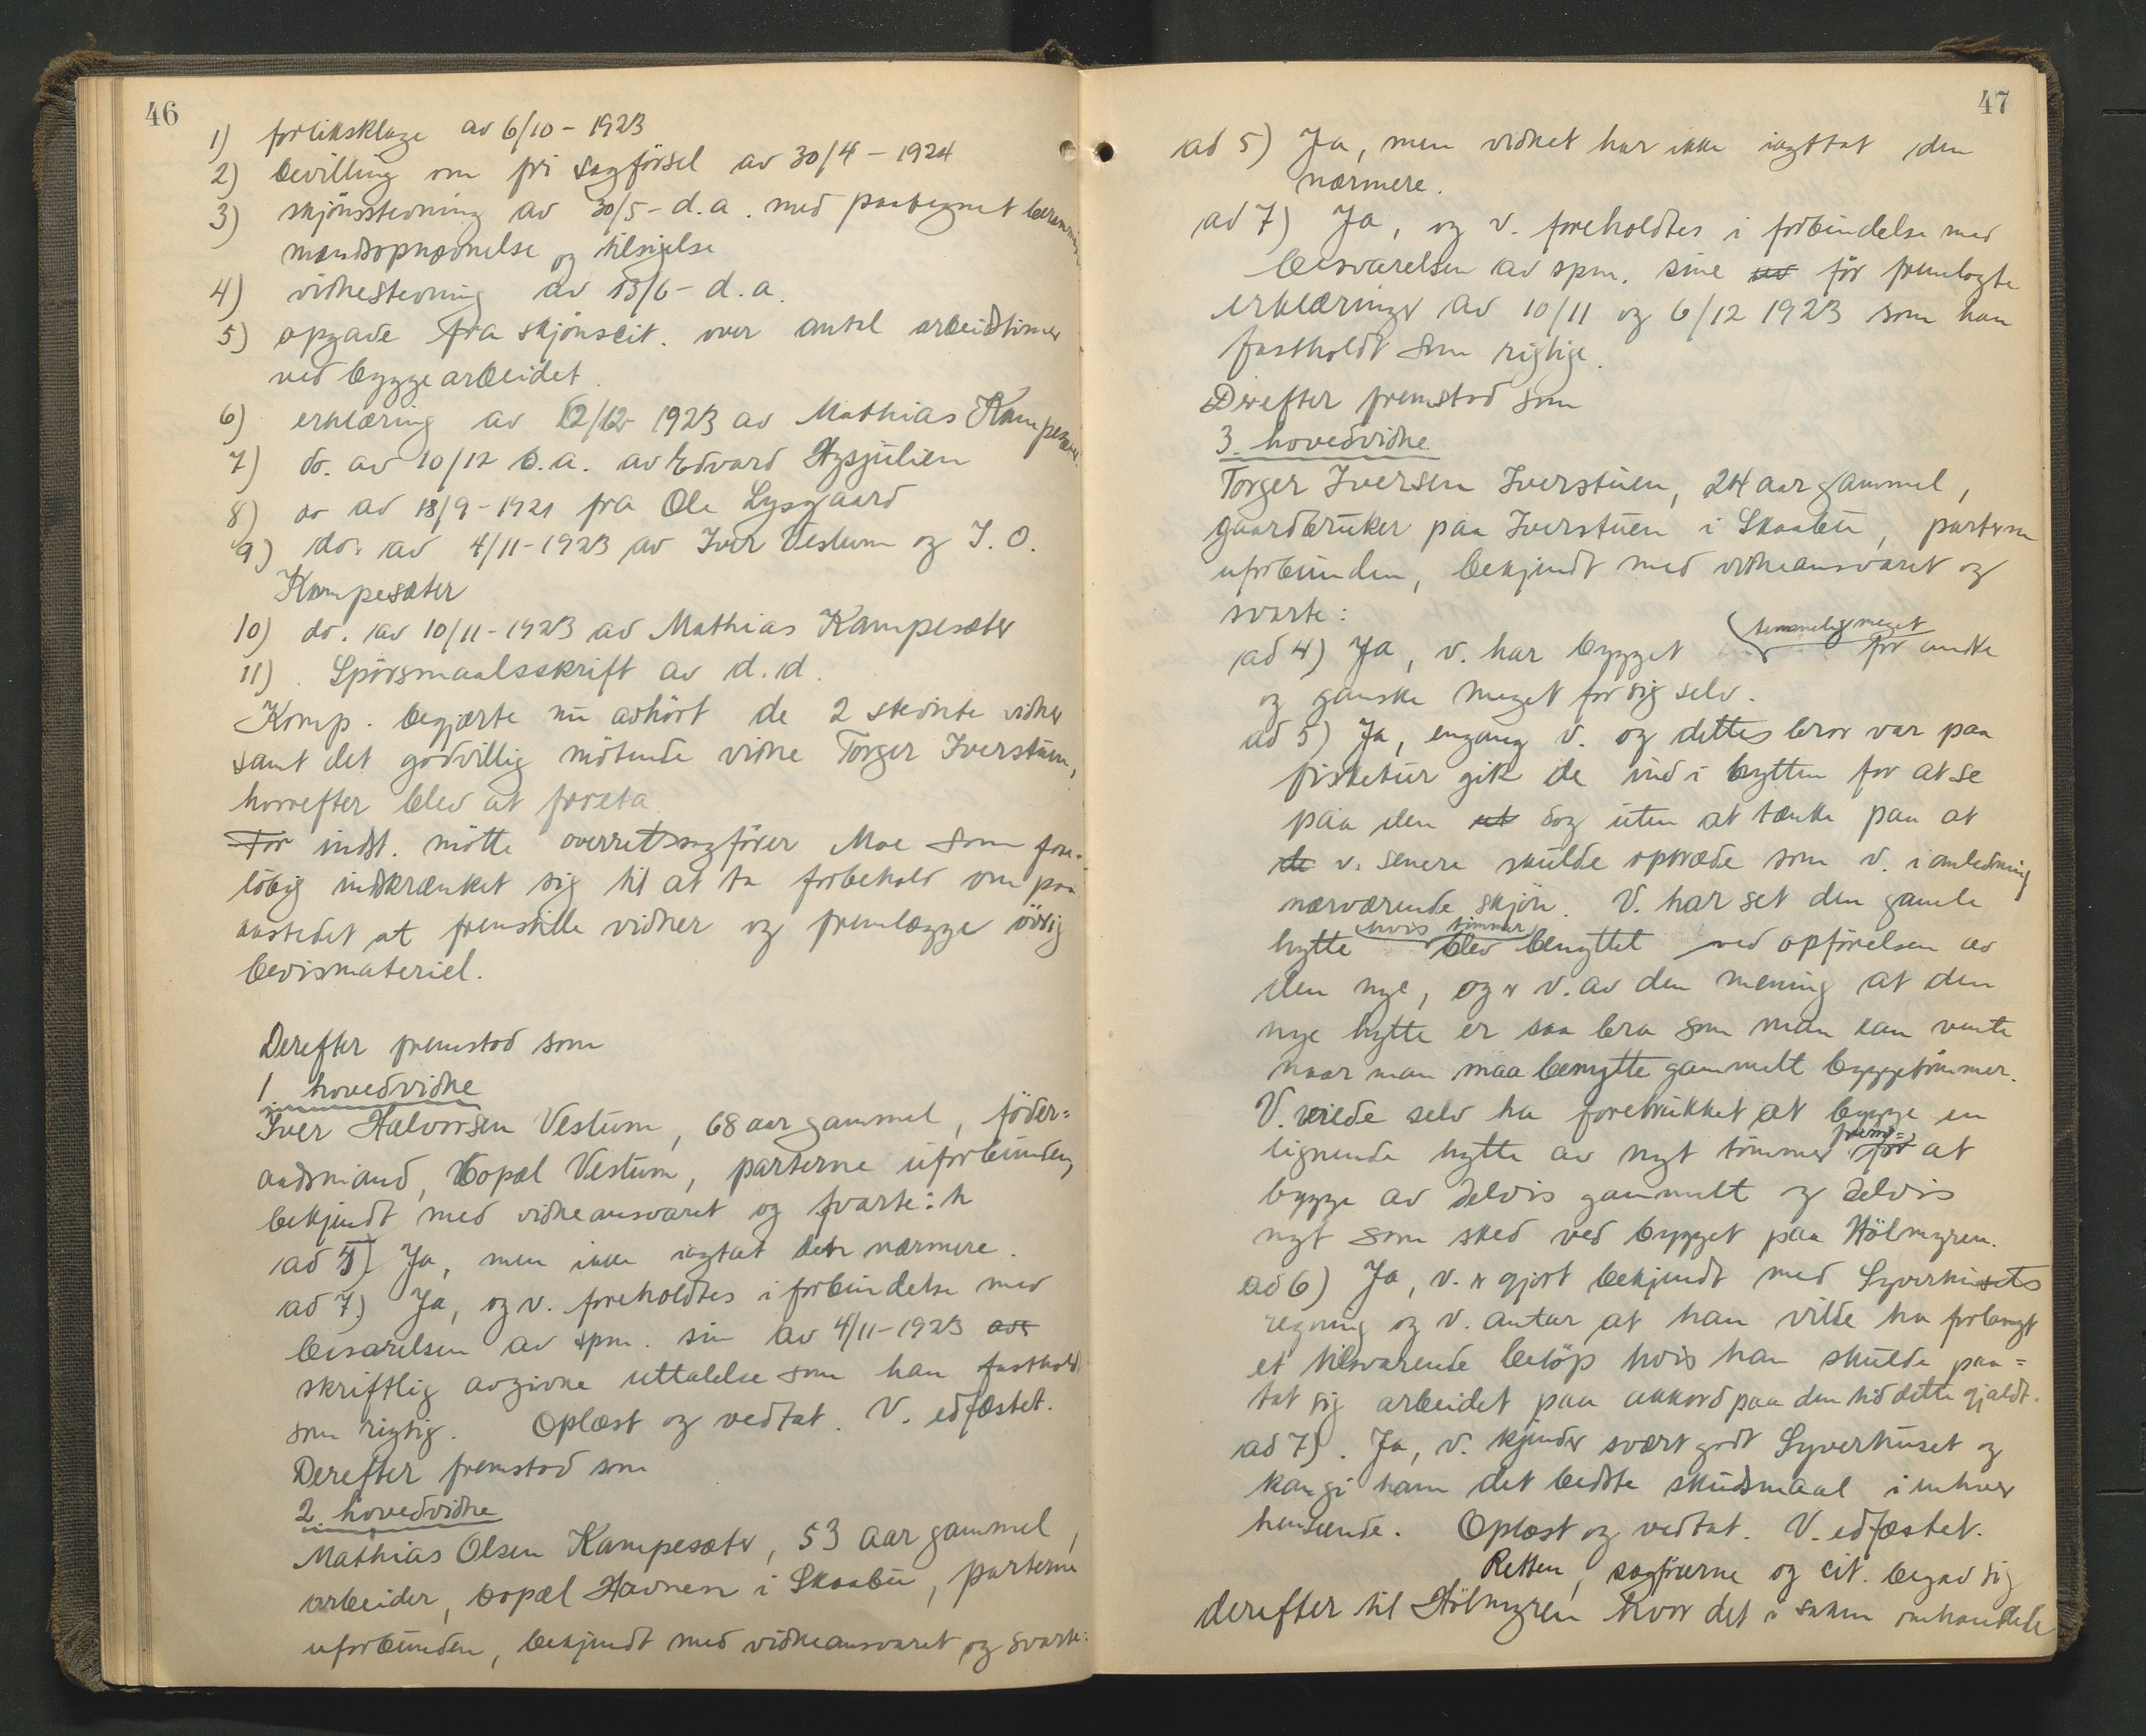 46
1) forliksklage av 6/10 - 1923
2) bevilling om fri sagförsel av 30/4 - 1924
3) skjönsstevning av 30/5 - d.a. med paategnet
mandsopnævnelse og tilsigelse
4) vidnestevning av 13/6 - d.a.
5) opgave fra skjönscit. over antal arbeidstimer
ved byggearbeidet.
6) erklæring av 12/12 1923 av Mathias Kampesæter
7) do. av 10/12 s.a. av Edvard
8) do av 18/9 - 1921 fra Ole Lysgaard
9) do. av 4/11 - 1923 av Iver Vestum og I. O.
Kampesæter
10) do. av 10/11 - 1923 av Mathias Kampesæter
11) Spörsmaalsskrift av d.d.
Komp. begjærte nu avhört de 2 stevnte vidner
samt det godvillig mötende vidne Torger Iverstuen,
hvorefter blev at foreta
For indst. mötte overretssagförer Moe som fore-
löbig indskrænket sig til at ta forbehold om paa
aastedet at fremstille vidner og fremlægge övrig
bevismateriel.
Derefter fremstod som
1 hovedvidne
Iver Halvorsen Vestum, 68 aar gammel, föder=
aadsmand, bopæl Vestum, parterne uforbunden,
bekjendt med vidneansvaret og svarte: h
ad 5) Ja, men ikke iagtat den nærmere.
ad 7.) Ja, og v. foreholdtes i forbindelse med
besvarelsen av spm. sin av 4/11 - 1923 avs
skriftlig avgivne uttalelse som han fastholdt
som rigtig. Oplæst og vedtat. V. edfæstet.
Derefter fremstod som
2. hovedvidne
Mathias Olsen Kampesæter, 53 aar gammel,
arbeider, bopæl Havnen i Skaabu, parterne
uforbunden, bekjendt med vidneansvaret og svarte:
47
ad 5) Ja, men vidnet har ikke iagttat den
nærmere.
ad 7) Ja, og v. foreholdtes i forbindelse med
besvarelsen av spm. sine av för fremlagte
erklæringer av 10/11 og 6/12 1923 som han
fastholdt som rigtige.
Derefter fremstod som
3. hovedvidne
Torger Iversen Iverstuen, 24 aar gammel,
gaardbruker paa Iverstuen i Skaabu, parterne
uforbunden, bekjendt med vidneansvaret og
svarte:
ad 4) Ja, v. har bygget temmelig meget for andre
og ganske meget for sig selv.
ad 5) Ja, engang v. og dettes bror var paa
fisketur gik de ind i hytten for at se
paa den ut dog uten at tænke paa at
de v. senere skulde optræde som v. i anledning
nærværende skjön. V. har set den gamle
hytte hvis tömmer blev benyttet ved opförelsen av
den nye, og er v. av den mening at den
nye hytte er saa bra som man kan vente
naar man maa benytte gammelt byggetömmer.
V. vilde selv ha foretrukket at bygge en
lignende hytte av nyt tömmer frem- for at
bygge av delvis gammelt og delvis
nyt som sked ved bygget paa Hölmyren.
ad 6) Ja, v. er gjort bekjendt med Syverhusets
regning og v. antar at han vilde ha forlangt
et tilsvarende belöp hvis han skulde paa=
tat sig arbeidet paa akkord paa den tid dette gjaldt.
ad 7). Ja, v. kjender svært godt Syverhuset og
kan gi ham det bedste skudsmaal i enhver
henseende. Oplæst og vedtat. V. edfæstet.
Retten, sagförerne og cit. begav sig
derefter til Hölmyren hvor det i saken omhandlede